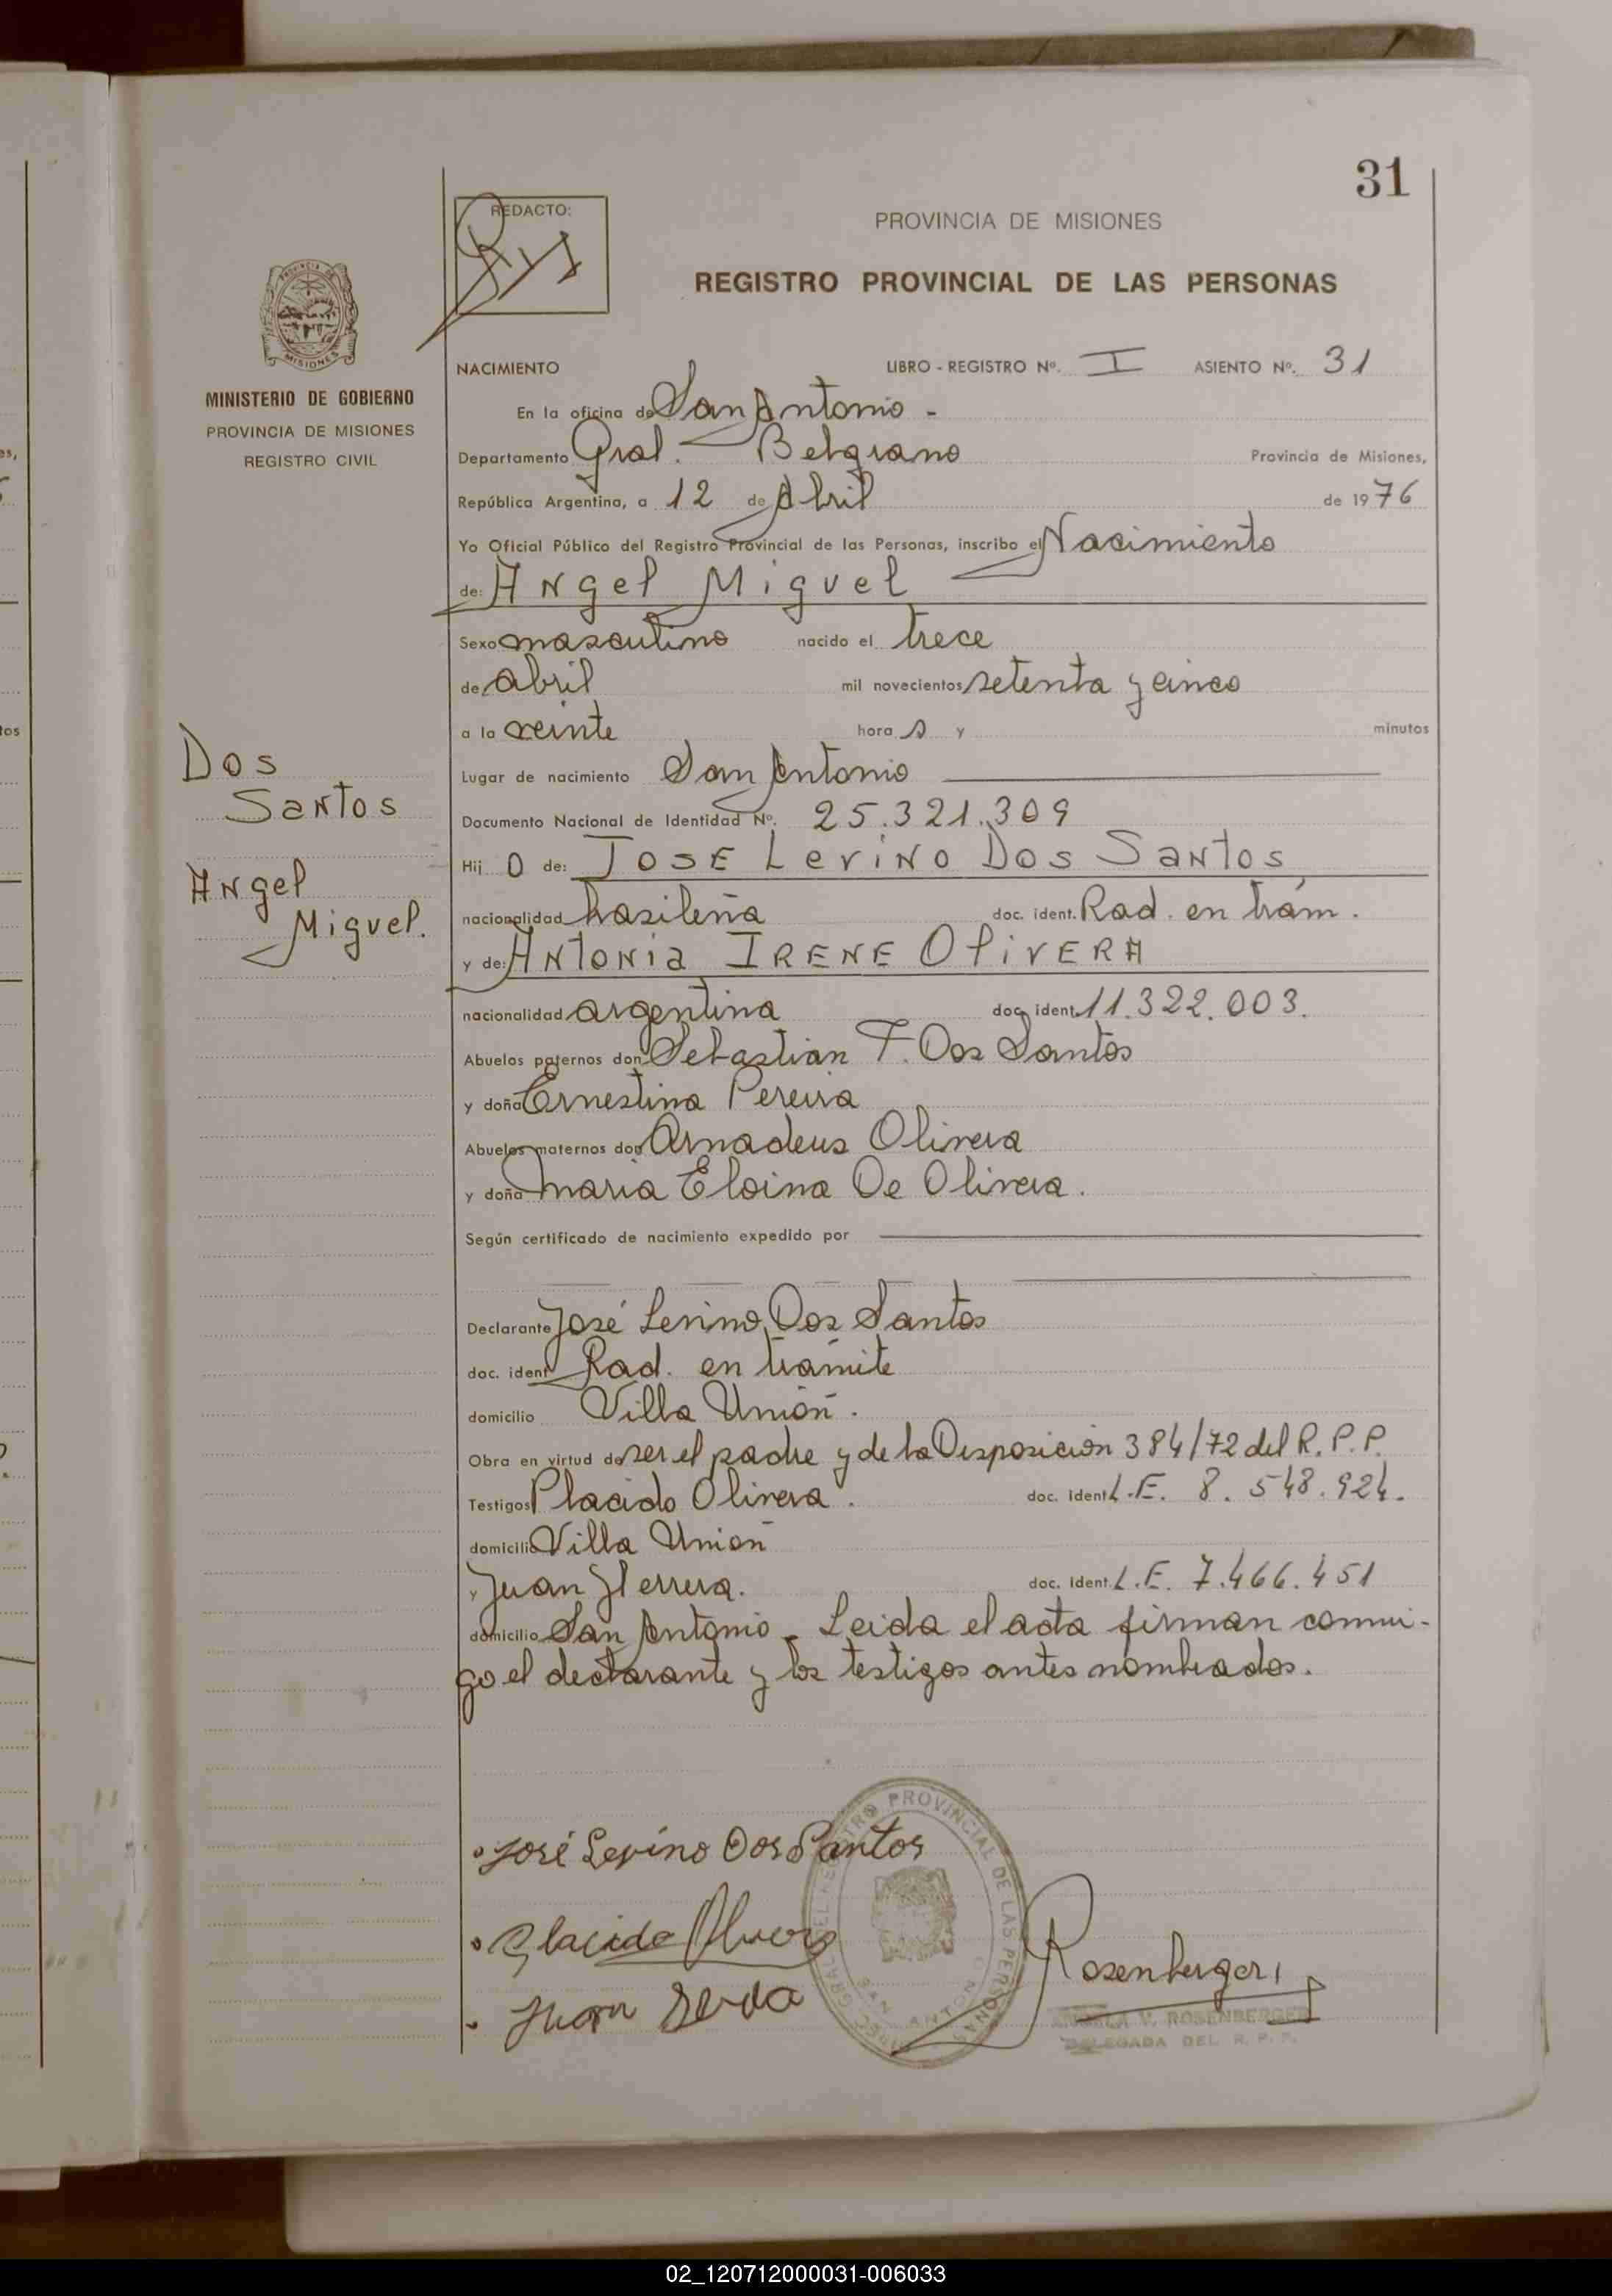 31
REDACTO:
PROVINCIA DE MISIONES
REGISTRO PROVINCIAL DE LAS PERSONAS
PROVINCIA DE
MISIONES
MINISTERIO DE GOBIERNO
PROVINCIA DE MISIONES
REGISTRO CIVIL
NACIMIENTO LIBRO - REGISTRO Nº. I ASIENTO Nº. 31
En la oficina de San Antonio -
Departamento Gral. Belgrano Provincia de Misiones,
República Argentina, a 12 de Abril de 1976
Yo Oficial Público del Registro Provincial de las Personas, inscribo el Nacimiento
de: Angel Miguel
Sexo masculino nacido el trece
de abril mil novecientos setenta y cinco
a la veinte hora s y minutos
Dos
Santos
Angel
Miguel.
Lugar de nacimiento San Antonio
Documento Nacional de Identidad Nº. 25.321.309
Hij o de: JOSE Levino Dos Santos
nacionalidad brasileña doc. ident. Rad. en trám.
y de: Antonia IRENE OliVERA
nacionalidad argentina doc. ident. 11.322.003.
Abuelos paternos don Sebastian F. Dos Santos
y doña Ernestina Pereira
Abuelos maternos don Amadeus Olivera
y doña Maria Eloina De Olivera.
Según certificado de nacimiento expedido por
Declarante José Levino Dos Santos
doc. ident Rad. en trámite
domicilio Villa Unión.
Obra en virtud de ser el padre y de la Disposición 384/72 del R.P.P.
Testigos Placido Olivera. doc. ident L.E. 8.548.924.
domicilio Villa Unión
y Juan Herrera. doc. ident. L.E. 7.466.451
domicilio San Antonio - Leida el acta firman conmi-
go el declarante y los testigos antes nombrados.
José Levino Dos Santos
Placido Olivera
Juan
Rosenberger
REGISTRO PROVINCIAL DE LAS PERSONAS
SAN ANTONIO
ANGELA V. ROSENBERGER
DELEGADA DEL R. P. P.
02_120712000031-006033